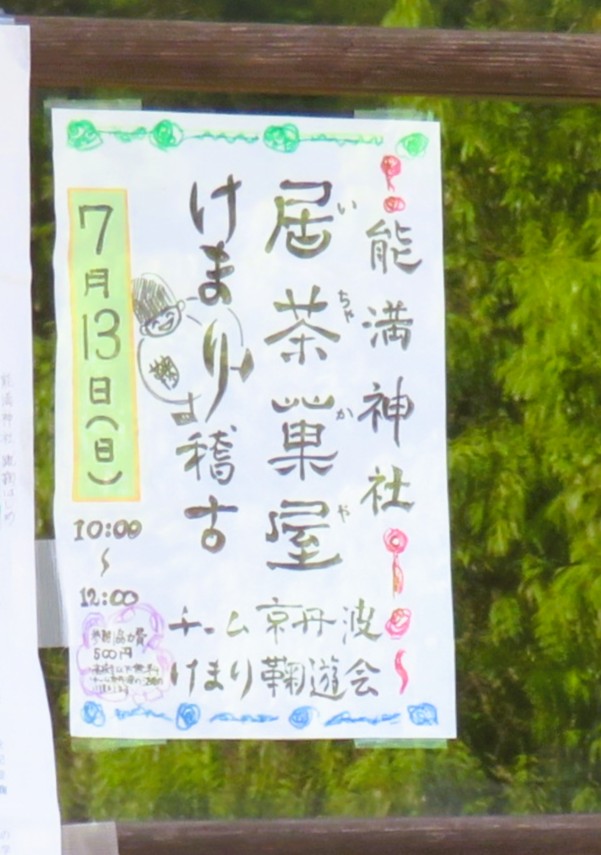 能満神社
居茶菓屋
い ちゃ か や
けまり稽古
7月13日(日)
10:00
〜
12:00
協力費
500円
チーム京丹波
けまり鞠遊会